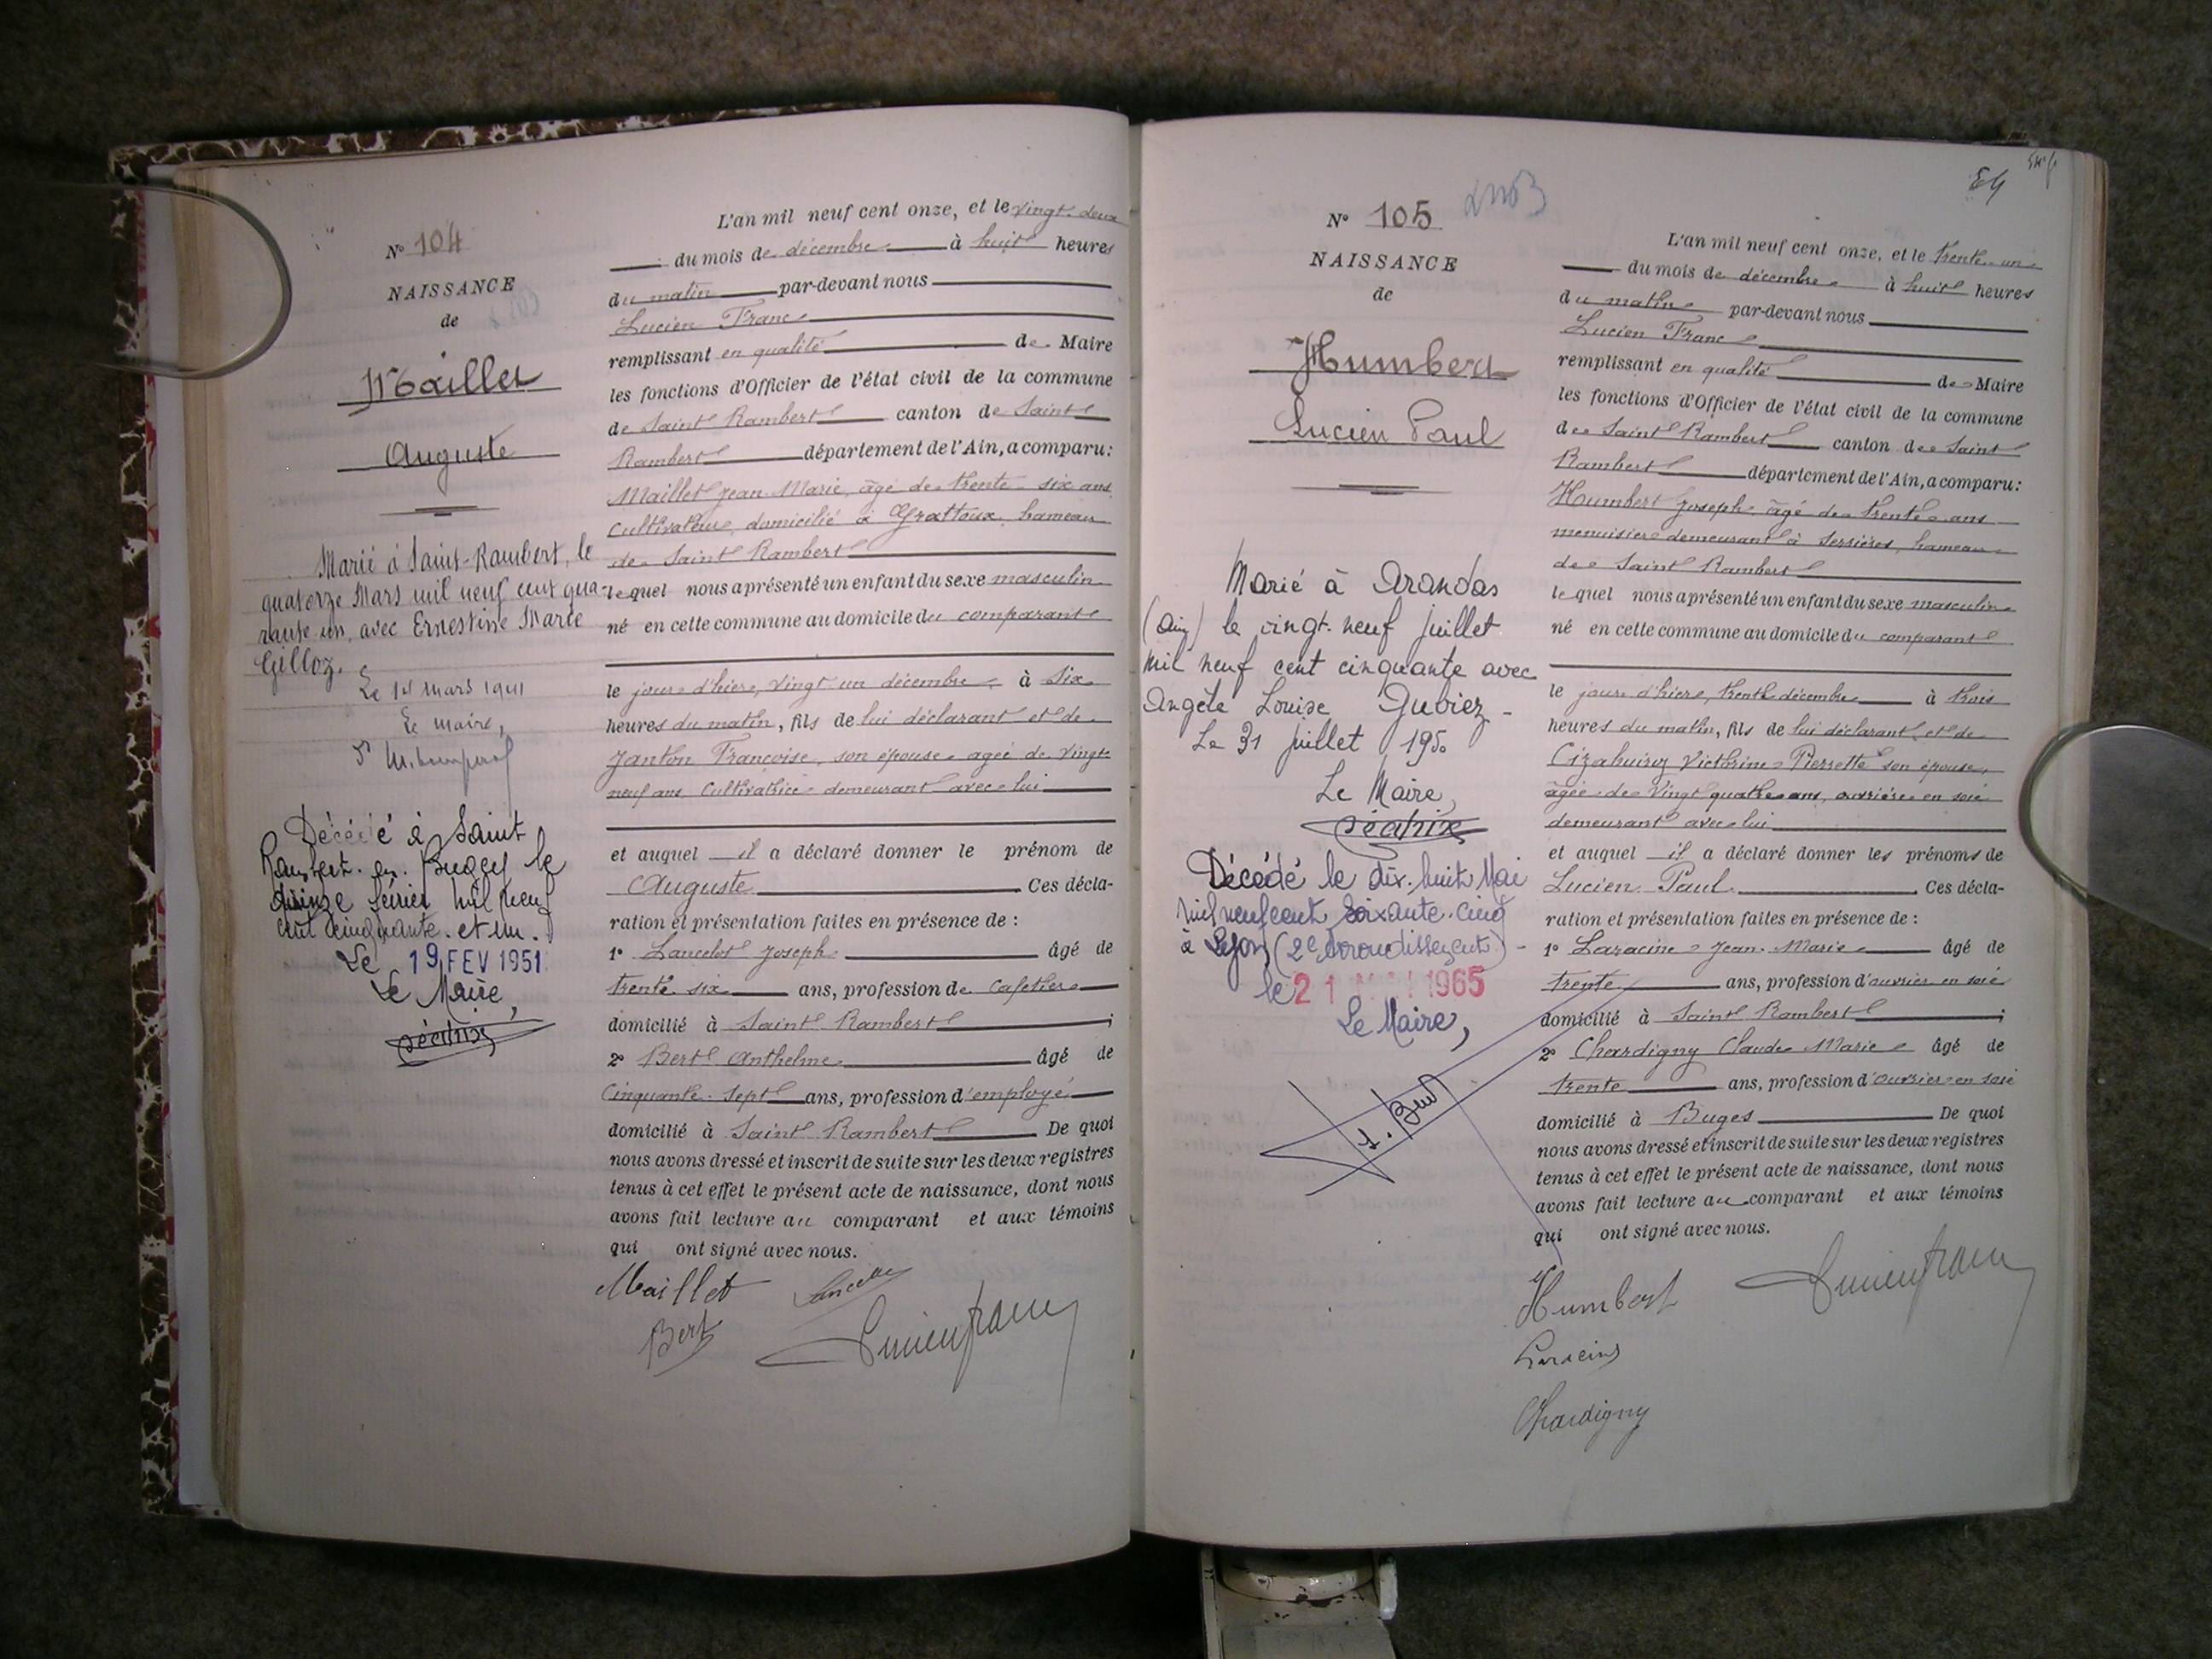 N° 104
NAISSANCE
de
Maillet
Auguste
Marié à Saint-Rambert, le
quatorze Mars mil neuf cent qua-
rante un, avec Ernestine Marie
Gilloz.
Le 14 mars 1941
Le maire,
Décédé à Saint
Rambert. en. Bugey le
quinze février mil neuf
cent cinquante. et un.
Le 19 FEV 1951
Le Maire,
L'an mil neuf cent onze, et le vingt-deux
du mois de décembre à huit heures
du matin par-devant nous
Lucien Franc
remplissant en qualité de Maire
les fonctions d'Officier de l'état civil de la commune
de Saint Rambert canton de Saint
Rambert département de l'Ain, a comparu:
Maillet Jean-Marie, âgé de trente-six ans
cultivateur, domicilié à Grattoux, hameau
de Saint Rambert
lequel nous a présenté un enfant du sexe masculin
né en cette commune au domicile du comparant
le jour d'hier, vingt-un décembre à six
heures du matin, fils de lui déclarant et de
Janton Françoise, son épouse agée de vingt
neuf ans cultivatrice demeurant avec lui
et auquel il a déclaré donner le prénom de
Auguste Ces décla-
ration et présentation faites en présence de :
1° Lancelot Joseph âgé de
trente six ans, profession de cafetier
domicilié à Saint Rambert ;
2° Bert Anthelme âgé de
cinquante-sept ans, profession d'employé
domicilié à Saint Rambert De quoi
nous avons dressé et inscrit de suite sur les deux registres
tenus à cet effet le présent acte de naissance, dont nous
avons fait lecture au comparant et aux témoins
qui ont signé avec nous.
Maillet Lancelot
Bert Lucien franc
N° 105
NAISSANCE
de
Humbert
Lucien Paul
Marié à Arandas
(Ain) le vingt-neuf juillet
mil neuf cent cinquante avec
Angèle Louise Jubiez -
Le 31 juillet 1950
Le Maire,
Décédé le dix-huit Mai
mil neuf cent soixante-cinq
à Lyon (2e Arrondissement) -
le 21 MAI 1965
Le Maire,
L'an mil neuf cent onze, et le trente-un
du mois de décembre à huit heures
du matin par-devant nous
Lucien Franc
remplissant en qualité de Maire
les fonctions d'Officier de l'état civil de la commune
de Saint Rambert canton de Saint
Rambert département de l'Ain, a comparu:
Humbert Joseph âgé de trente ans
menuisier demeurant à Serrières, hameau
de Saint Rambert
lequel nous a présenté un enfant du sexe masculin
né en cette commune au domicile du comparant
le jour d'hier, trente décembre à trois
heures du matin, fils de lui déclarant et de
Victorine-Pierrette son épouse,
âgée de vingt quatre ans, ouvrière en soie
demeurant avec lui
et auquel il a déclaré donner les prénoms de
Lucien Paul. Ces décla-
ration et présentation faites en présence de :
1° Laracine Jean-Marie âgé de
trente ans, profession d'ouvrier en soie
domicilié à Saint Rambert ;
2° Chardigny Claude Marie âgé de
trente ans, profession d'ouvrier en soie
domicilié à Buges De quoi
nous avons dressé et inscrit de suite sur les deux registres
tenus à cet effet le présent acte de naissance, dont nous
avons fait lecture au comparant et aux témoins
qui ont signé avec nous.
Humbert Lucien franc
Laracine
Chardigny